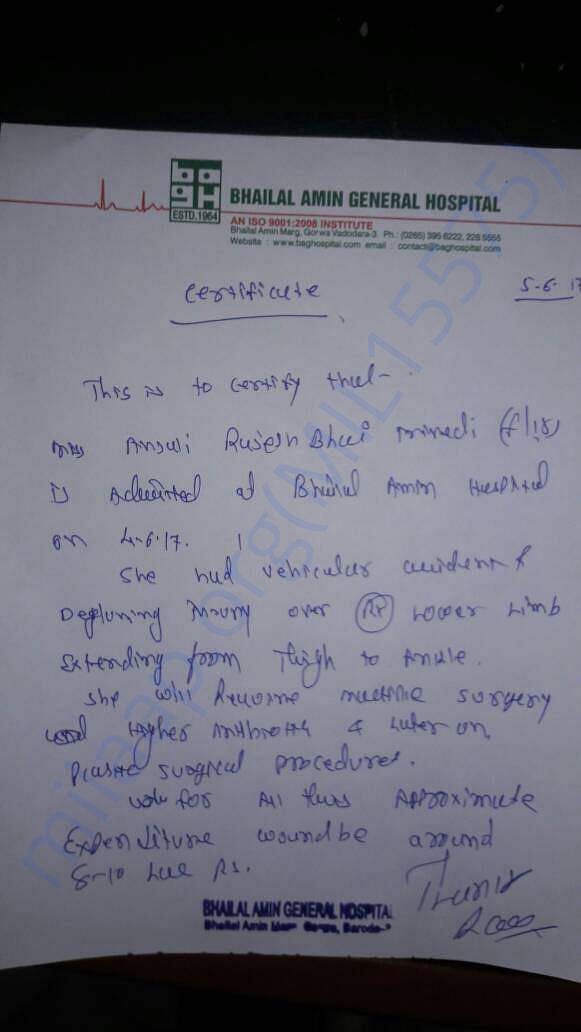 BHAILAL AMIN GENERAL HOSPITAL
ESTD.1964
AN ISO 9001:2008 INSTITUTE
Bhailal Amin Marg, Gorwa Vadodara-3. Ph.: (0265) 395 6222, 228 5555
Website : www.baghospital.com email : contact@baghospital.com
certificate
5-6-17
This is to certify that-
Rajesh Bhai (f/18)
is admitted at Bhailal Amin Hospital
on 4-6-17.
She had vehicular accident &
Degluning Injury over Rt Lower Limb
Extending from Thigh to Ankle.
She will Require multiple surgery
and Higher Antibiotics & Later on,
Plastic surgical procedures.
for All this Approximate
Expenditure would be around
8-10 Lac Rs.
BHAILAL AMIN GENERAL HOSPITAL
Bhailal Amin Marg Gorwa, Baroda-3
milaap.org(MIL155175)